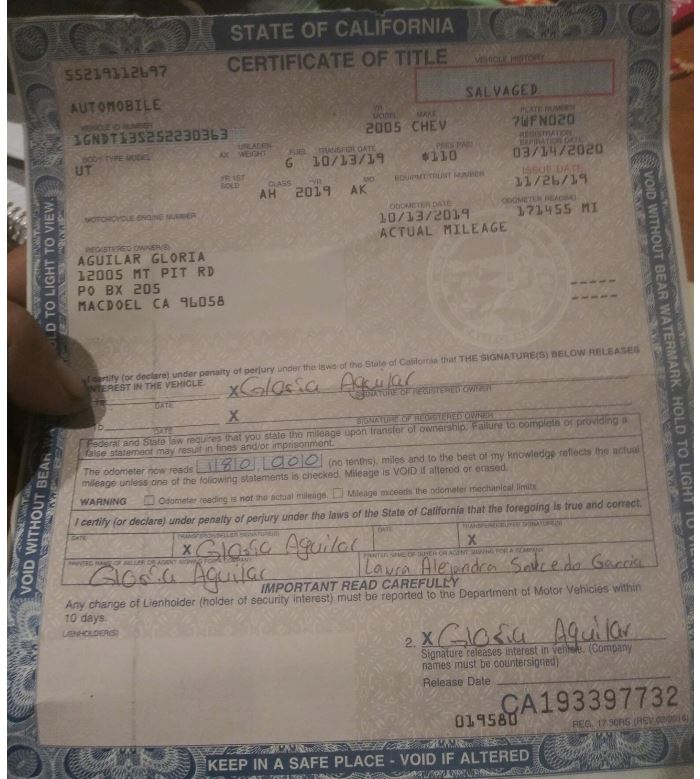 STATE OF CALIFORNIA
CERTIFICATE OF TITLE
VEHICLE HISTORY
55219112697
SALVAGED
AUTOMOBILE
VEHICLE ID NUMBER
YR MODEL
MAKE
PLATE NUMBER
1GNDT13S252230363
2005 CHEV
7WFN020
BODY TYPE MODEL
AX
UNLADEN WEIGHT
FUEL
TRANSFER DATE
FEES PAID
REGISTRATION EXPIRATION DATE
UT
G
10/13/19
$110
03/14/2020
YR 1ST SOLD
CLASS
YR
MO
EQUIPMT/TRUST NUMBER
ISSUE DATE
AH
2019
AK
11/26/19
MOTORCYCLE ENGINE NUMBER
ODOMETER DATE
ODOMETER READING
10/13/2019
171455 MI
ACTUAL MILEAGE
REGISTERED OWNER(S)
AGUILAR GLORIA
12005 MT PIT RD
PO BX 205
MACDOEL CA 96058
I certify (or declare) under penalty of perjury under the laws of the State of California that THE SIGNATURE(S) BELOW RELEASES
INTEREST IN THE VEHICLE.
X Gloria Aguilar
DATE
SIGNATURE OF REGISTERED OWNER
X
DATE
SIGNATURE OF REGISTERED OWNER
Federal and State law requires that you state the mileage upon transfer of ownership. Failure to complete or providing a
false statement may result in fines and/or imprisonment.
The odometer now reads 180,000 (no tenths), miles and to the best of my knowledge reflects the actual
mileage unless one of the following statements is checked. Mileage is VOID if altered or erased.
WARNING Odometer reading is not the actual mileage. Mileage exceeds the odometer mechanical limits.
I certify (or declare) under penalty of perjury under the laws of the State of California that the foregoing is true and correct.
DATE
TRANSFEROR/SELLER SIGNATURE(S)
DATE
TRANSFEREE/BUYER SIGNATURE(S)
X Gloria Aguilar
X
PRINTED NAME OF SELLER OR AGENT SIGNING FOR A COMPANY
PRINTED NAME OF BUYER OR AGENT SIGNING FOR A COMPANY
Gloria Aguilar
Laura Alejandra Salcedo Garcia
IMPORTANT READ CAREFULLY
Any change of Lienholder (holder of security interest) must be reported to the Department of Motor Vehicles within
10 days.
LIENHOLDER(S)
2. X Gloria Aguilar
Signature releases interest in vehicle. (Company
names must be countersigned)
Release Date
CA193397732
019580
REG. 17.30RS (REV 02/2016)
KEEP IN A SAFE PLACE - VOID IF ALTERED
VOID WITHOUT BEAR
LD TO LIGHT TO VIEW.
VOID WITHOUT BEAR WATERMARK. HOLD TO LIGHT TO